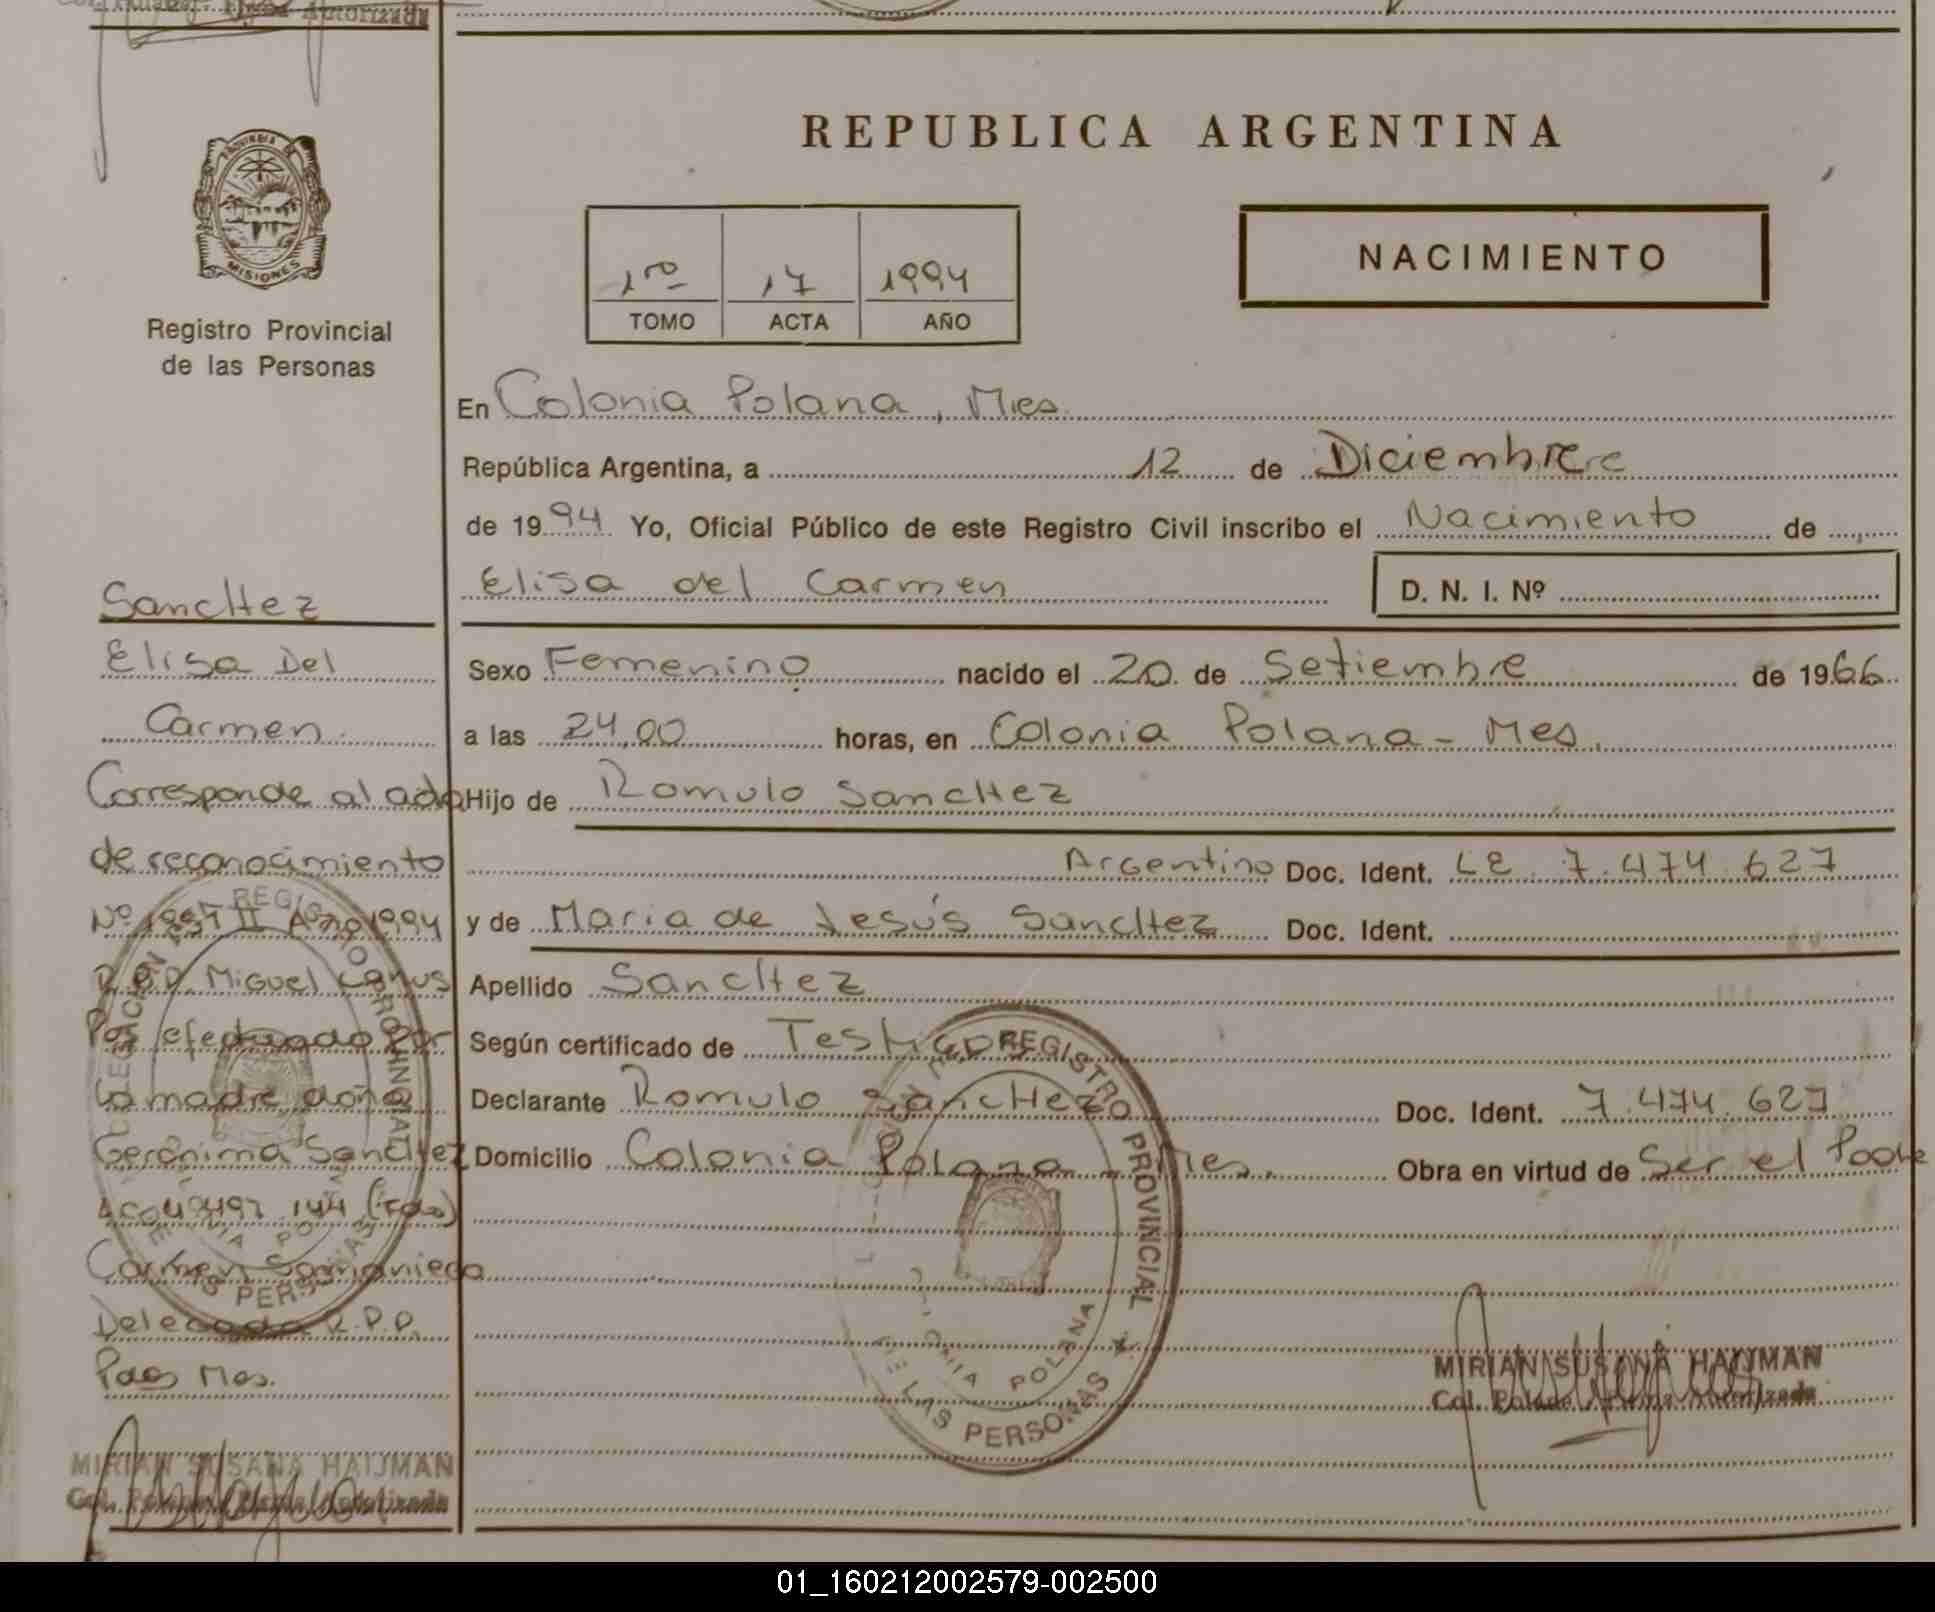 Firma Autorizada
PROVINCIA DE
MISIONES
Registro Provincial
de las Personas
REPUBLICA ARGENTINA
NACIMIENTO
1ro 17 1994
TOMO ACTA AÑO
En Colonia Polana, Mes.
República Argentina, a 12 de Diciembre
de 1994 Yo, Oficial Público de este Registro Civil inscribo el Nacimiento de
Elisa del Carmen D. N. I. Nº
Sexo Femenino nacido el 20 de Setiembre de 1966
a las 24,00 horas, en Colonia Polana - Mes.
Hijo de Romulo Sanchez
Argentino Doc. Ident. LE 7.474.627
y de Maria de Jesús Sanchez Doc. Ident.
Apellido Sanchez
Según certificado de Testigos
Declarante Romulo Sanchez Doc. Ident. 7.474.627
Domicilio Colonia Polana - Mes. Obra en virtud de Ser el Padre
Sanchez
Elisa Del
Carmen.
Corresponde al acta
de reconocimiento
Nº II Año 1994
Miguel
efectuado por
la madre doña
Gerónima Sanchez
Carmen Samaniego
Delegada R.P.P.
Mes.
MIRIAN SUSANA HAIJMAN
REGISTRO PROVINCIAL
DE LAS PERSONAS
COLONIA POLANA
MIRIAN SUSANA HAIJMAN
01_160212002579-002500